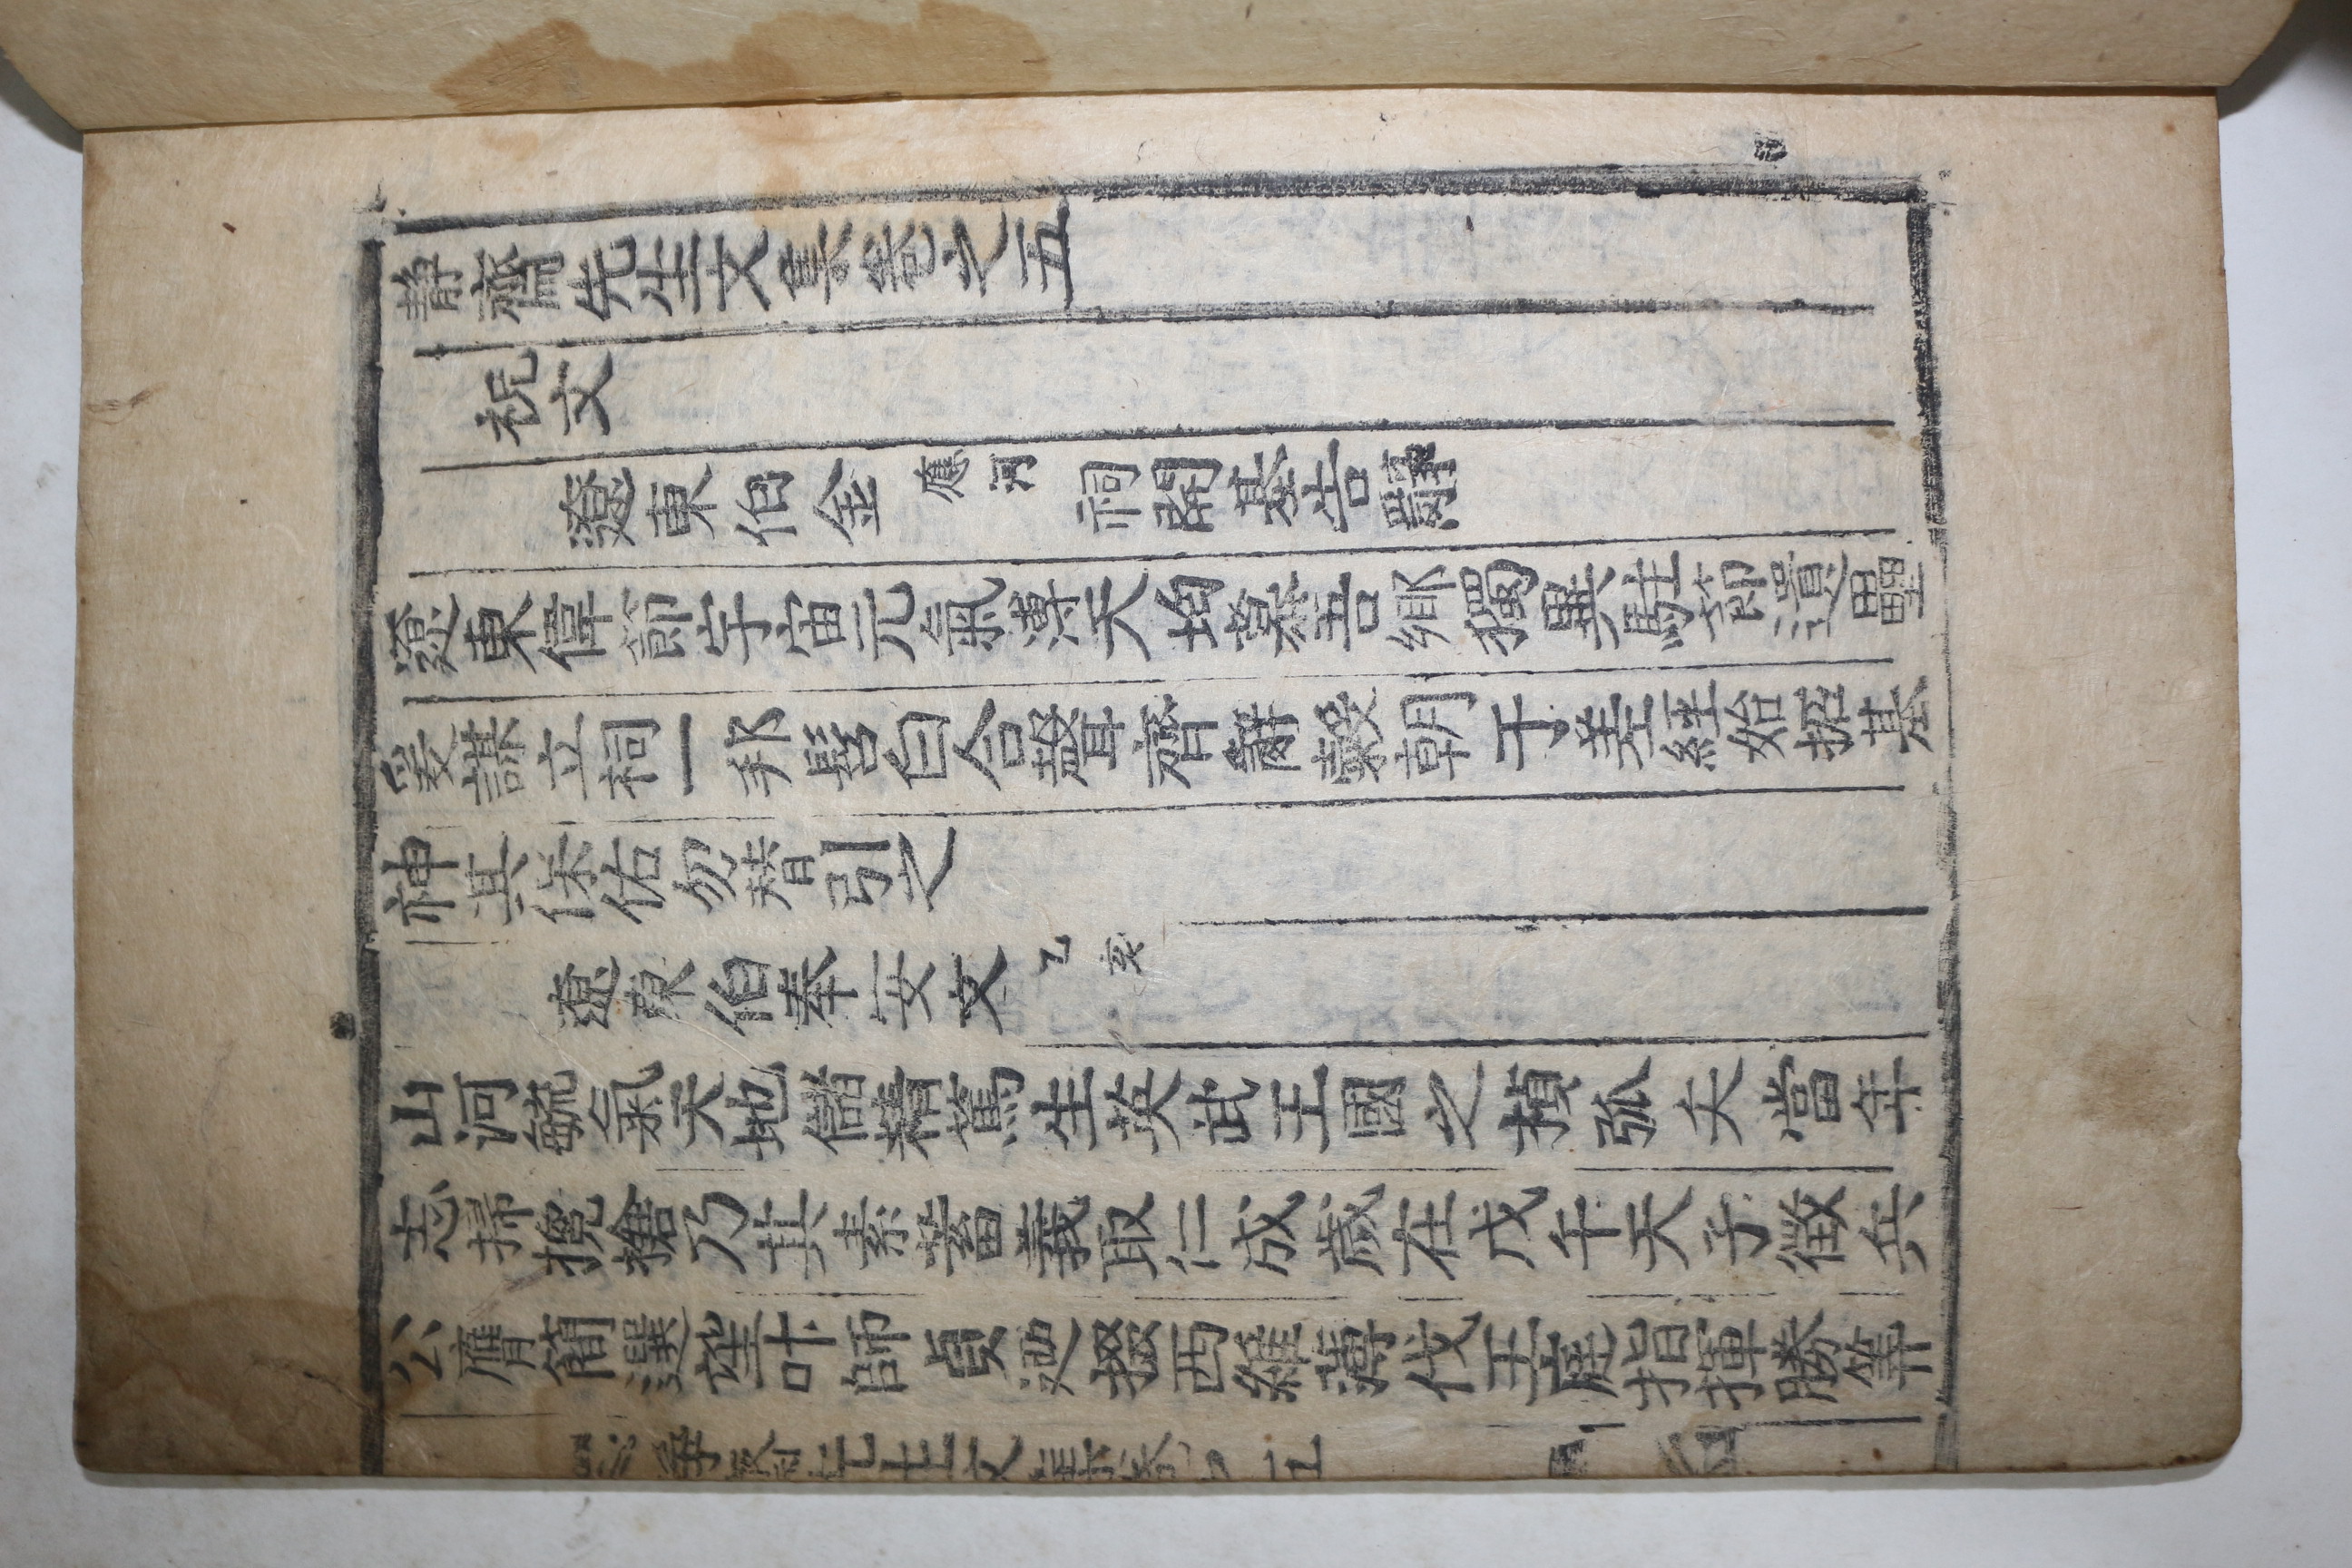 静齋先生文集卷之五
祝文
遼東伯金應河祠開基告辭
遼東偉節宇宙元氣溥天均慕吾鄉獨異駐節遺壘
爰謀立祠一邦髦白合聲齊辭穀朝于差經始拓基
神其保佑勿替引之
遼東伯奉安文乙亥
山河毓氣天地儲精篤生英武王國之楨弧矢當年
志掃攙搶乃其素蓄義取仁成歲在戊午天子徵兵
公膺簡選望叶師貞廼掇西維薄伐王庭指揮勝筭
先生文集卷之五